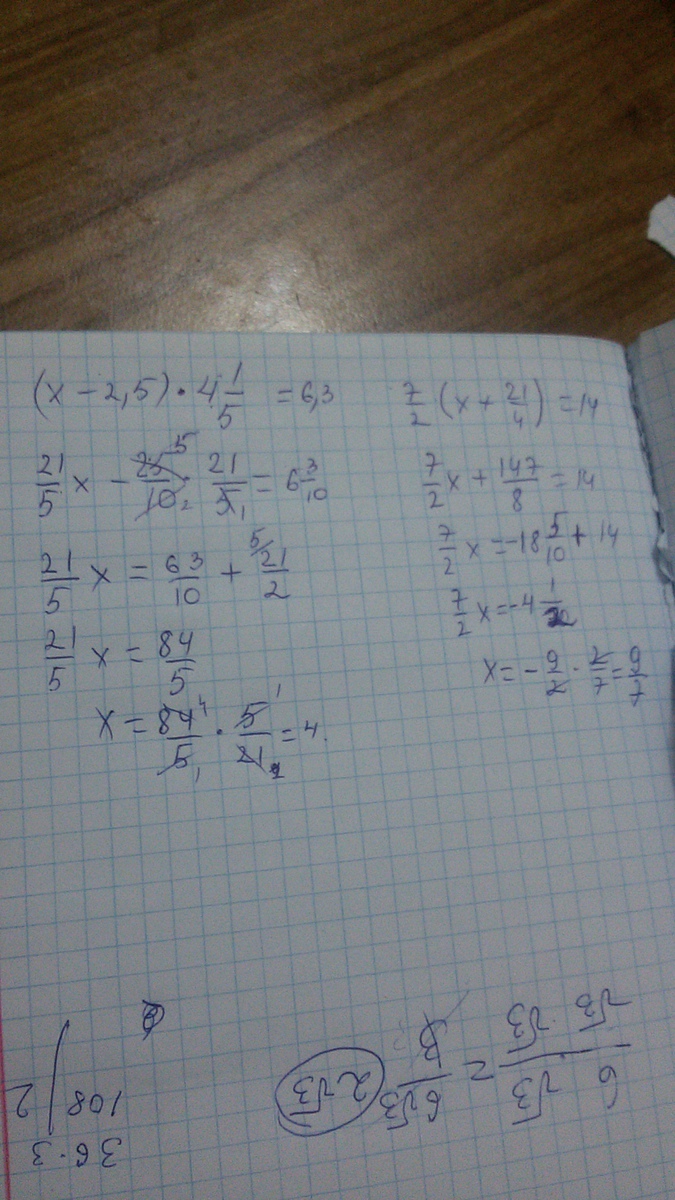 (x − 2,5) · 4 1/5 = 6,3
21/5 x − 25/10 · 21/5 = 6 3/10
21/5 x = 63/10 + 21/2
21/5 x = 84/5
x = 84/5 · 5/21 = 4.
7/2 (x + 21/4) = 14
7/2 x + 147/8 = 14
7/2 x = −18 5/10 + 14
7/2 x = −4 1/2
x = − 9/2 · 2/7 = 9/7
6 √3 / √3 √3 = 6√3 / 3 2√3
36 · 3
108 | 2